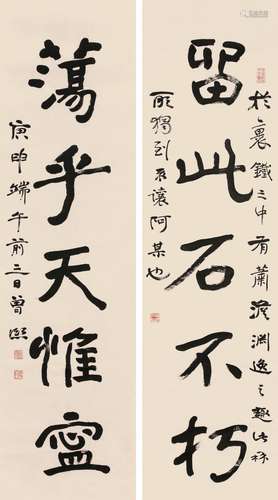 留此石不朽
於裹鐵之中有蕭澹淵逸之趣此
所獨到不讓阿某也
蕩乎天惟寍
庚申端午前三日曾熙